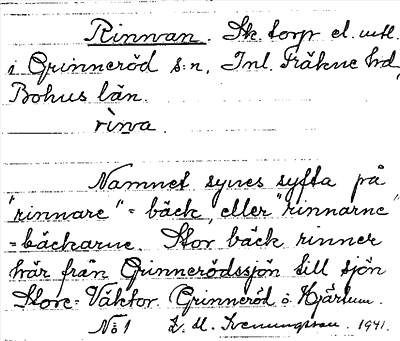 Rinnvan. Sk. torp el. utl.
i Grinneröd s:n, Inl. Fräkne hd,
Bohus län.
rinva.
Namnet synes syfta på
"rinnare" = bäck, eller "rinnarne"
= bäckarne. Stor bäck rinner
här från Grinnerödssjön till sjön
Store-Väktor. Grinneröd o. Hjärtum.
No 1 1941.